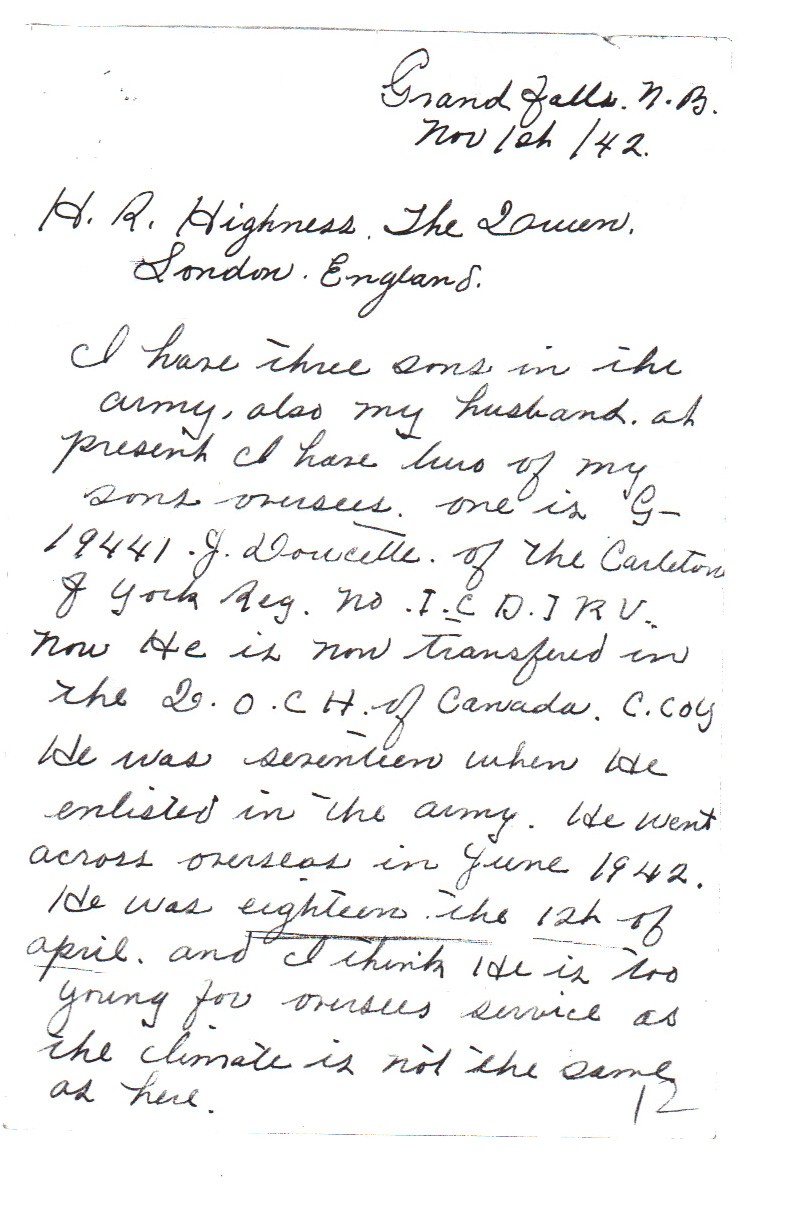 Grand Falls. N.B.
Nov 1st /42.
H. R. Highness. The Queen.
London. England.
I have three sons in the
army, also my husband. at
present I have two of my
sons oversees. one is G-
19441. J. Doucette. of the Carleton
& York Reg. No. I. C D. I R V..
Now He is now transfered in
the Q. O. C H. of Canada. C. Coy
He was seventeen when He
enlisted in the army. He went
across overseas in June 1942.
He was eighteen the 12h of
april. and I think He is too
young for oversees service as
the climate is not the same
as here.
12